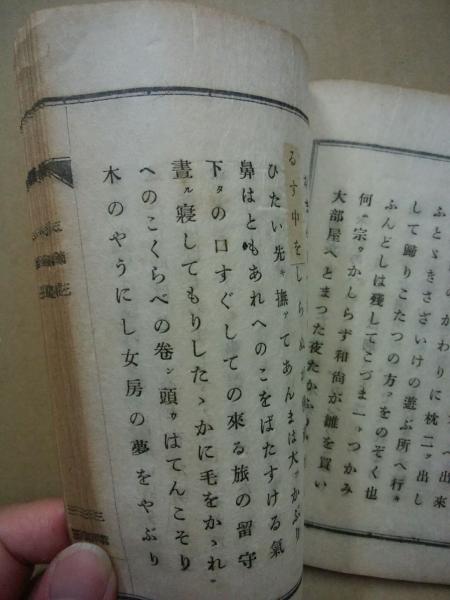 のかわりに枕二ッ出し
ふとゝきさざいけの遊ぶ所へ行ル
して歸りこたつの方ヲをのぞく也
ふんどしは殘してこづま二ッつかみ
何ン宗カかしらず和尚が雛を買い
大部屋へとまつた夜たかふ
るす中をしらぬが
ひたい先キ撫テてあんまは大かぶり
鼻はともあれへのこをばたすける氣
下タの口すぐしての來る旅の留守
晝ル寢してもりしたゝかに毛をかゝれ
へのこくらべの卷ン頭ウはてんこそり
木のやうにし女房の夢をやぶり